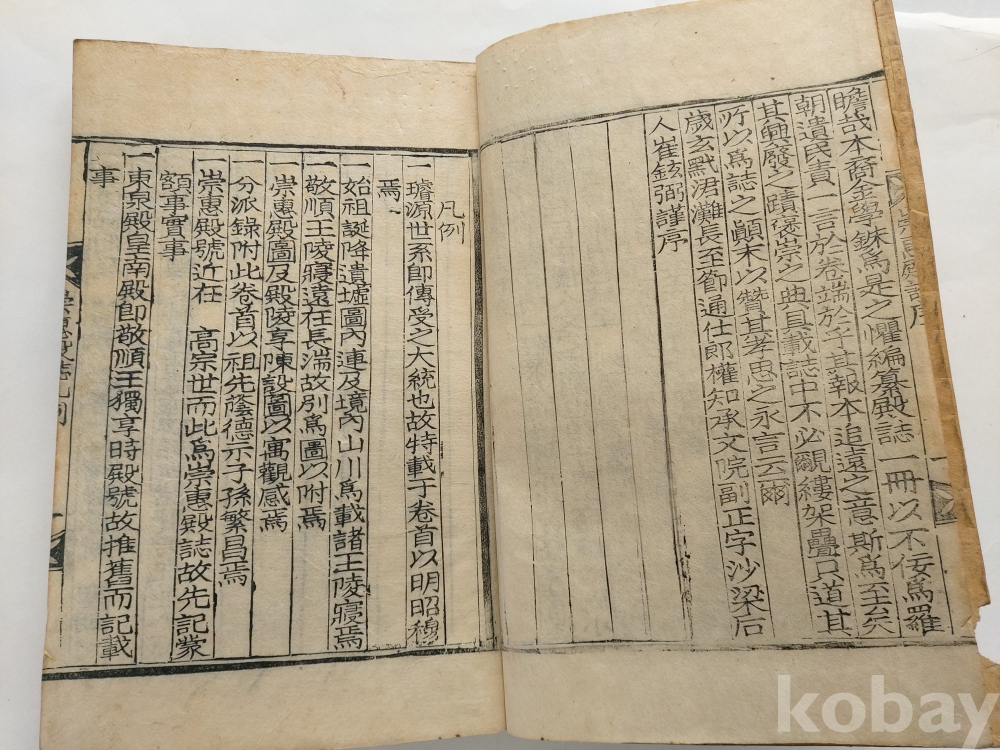 瞻哉本裔金學銖爲是之懼編纂殿誌一冊以不佞爲羅
朝遺民責一言於卷端於乎其報本追遠之意斯爲至矣
其興廢之蹟褒崇之典具載誌中不必覼縷架疊只道其
所以爲誌之顚末以贊其孝思之永言云爾
歲玄黓涒灘長至節通仕郎權知承文院副正字沙梁后
人崔鉉弼謹序
凡例
一璿源世系卽傳受之大統也故特載于卷首以明昭穆
焉
一始祖誕降遺墟圖內連及境內山川爲載諸王陵寢焉
一敬順王陵寢遠在長湍故別爲圖以附焉
一崇惠殿圖及殿陵享陳設圖以寓觀感焉
一分派錄附此卷首以祖先蔭德示子孫繁昌焉
一崇惠殿號近在 高宗世而此爲崇惠殿誌故先記蒙
額事實事
一東泉殿皇南殿卽敬順王獨享時殿號故推舊而記載
事
kobay